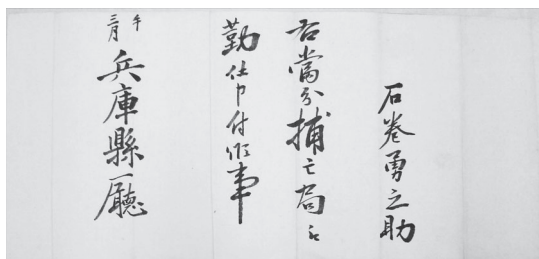 石巻勇之助
右當分捕亡局江
勤仕申付候事
午
三月
兵庫縣廳